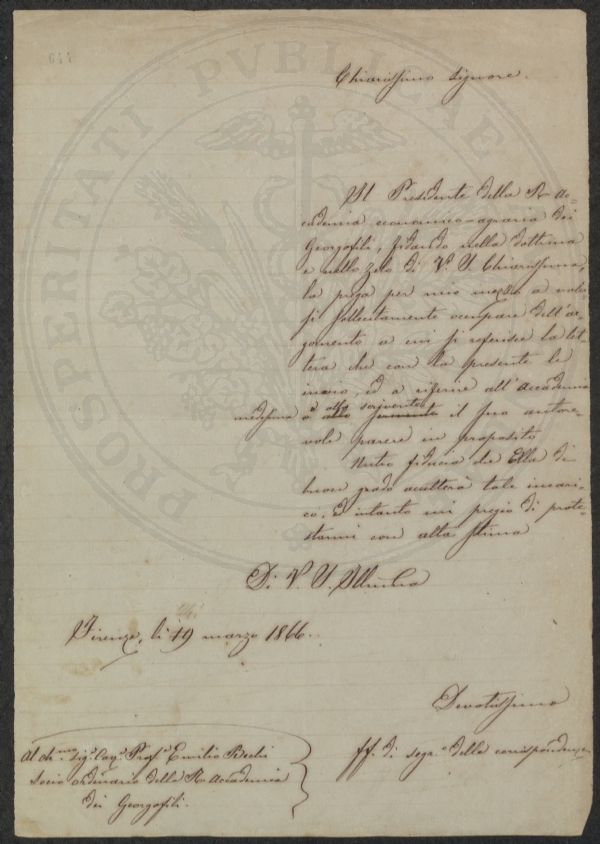 644
PROSPERITATI PVBLICAE
Chiarissimo Signore.
Il Presidente della R. Ac=
cademia economico-agraria dei
Georgofili, fidando nella dottrina
e nello zelo di V. S. Chiarissima,
la prega per mio mezzo a voler
si sollecitamente occupare dell'ar=
gomento a cui si referisce la let=
tera che con la presente le
invio, ed a riferire all'Accademia
medesima o allo scrivente il suo autore=
vole parere in proposito.
Nutro fiducia che Ella di
buon grado accetterà tale incari=
co, ed intanto mi pregio di prote=
starmi con alta stima
Di V. S. Illma
Firenze, li 19 marzo 1866.
Devotissimo
ff. di segr.º della corrispondenza
Al ch.mo Sig.r Cav.r Prof.r Emilio Bechi
Socio ordinario della R. Accademia
dei Georgofili.